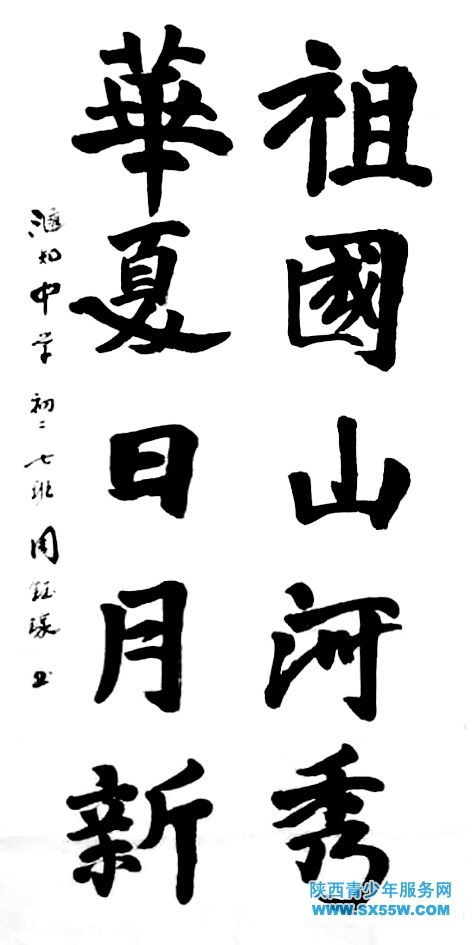 祖國山河秀
華夏日月新
滙知中学 初二 七班 周钰 书
陕西青少年服务网
WWW.SX55W.COM